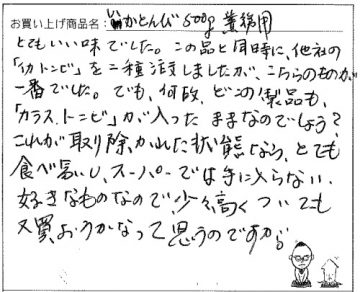 お買い上げ商品名：いかとんび 500g 業務用
とてもいい味でした。この品と同時に、他社の
「イカトンビ」を二種注文しましたが、こちらのものが
一番でした。でも、何故、どこの製品も、
「カラストンビ」が入ったままなのでしょう？
これが取り除かれた状態なら、とても
食べ易いし、スーパーでは手に入らない、
好きなものなので、少々高くついても
又買おうかなって思うのですが。